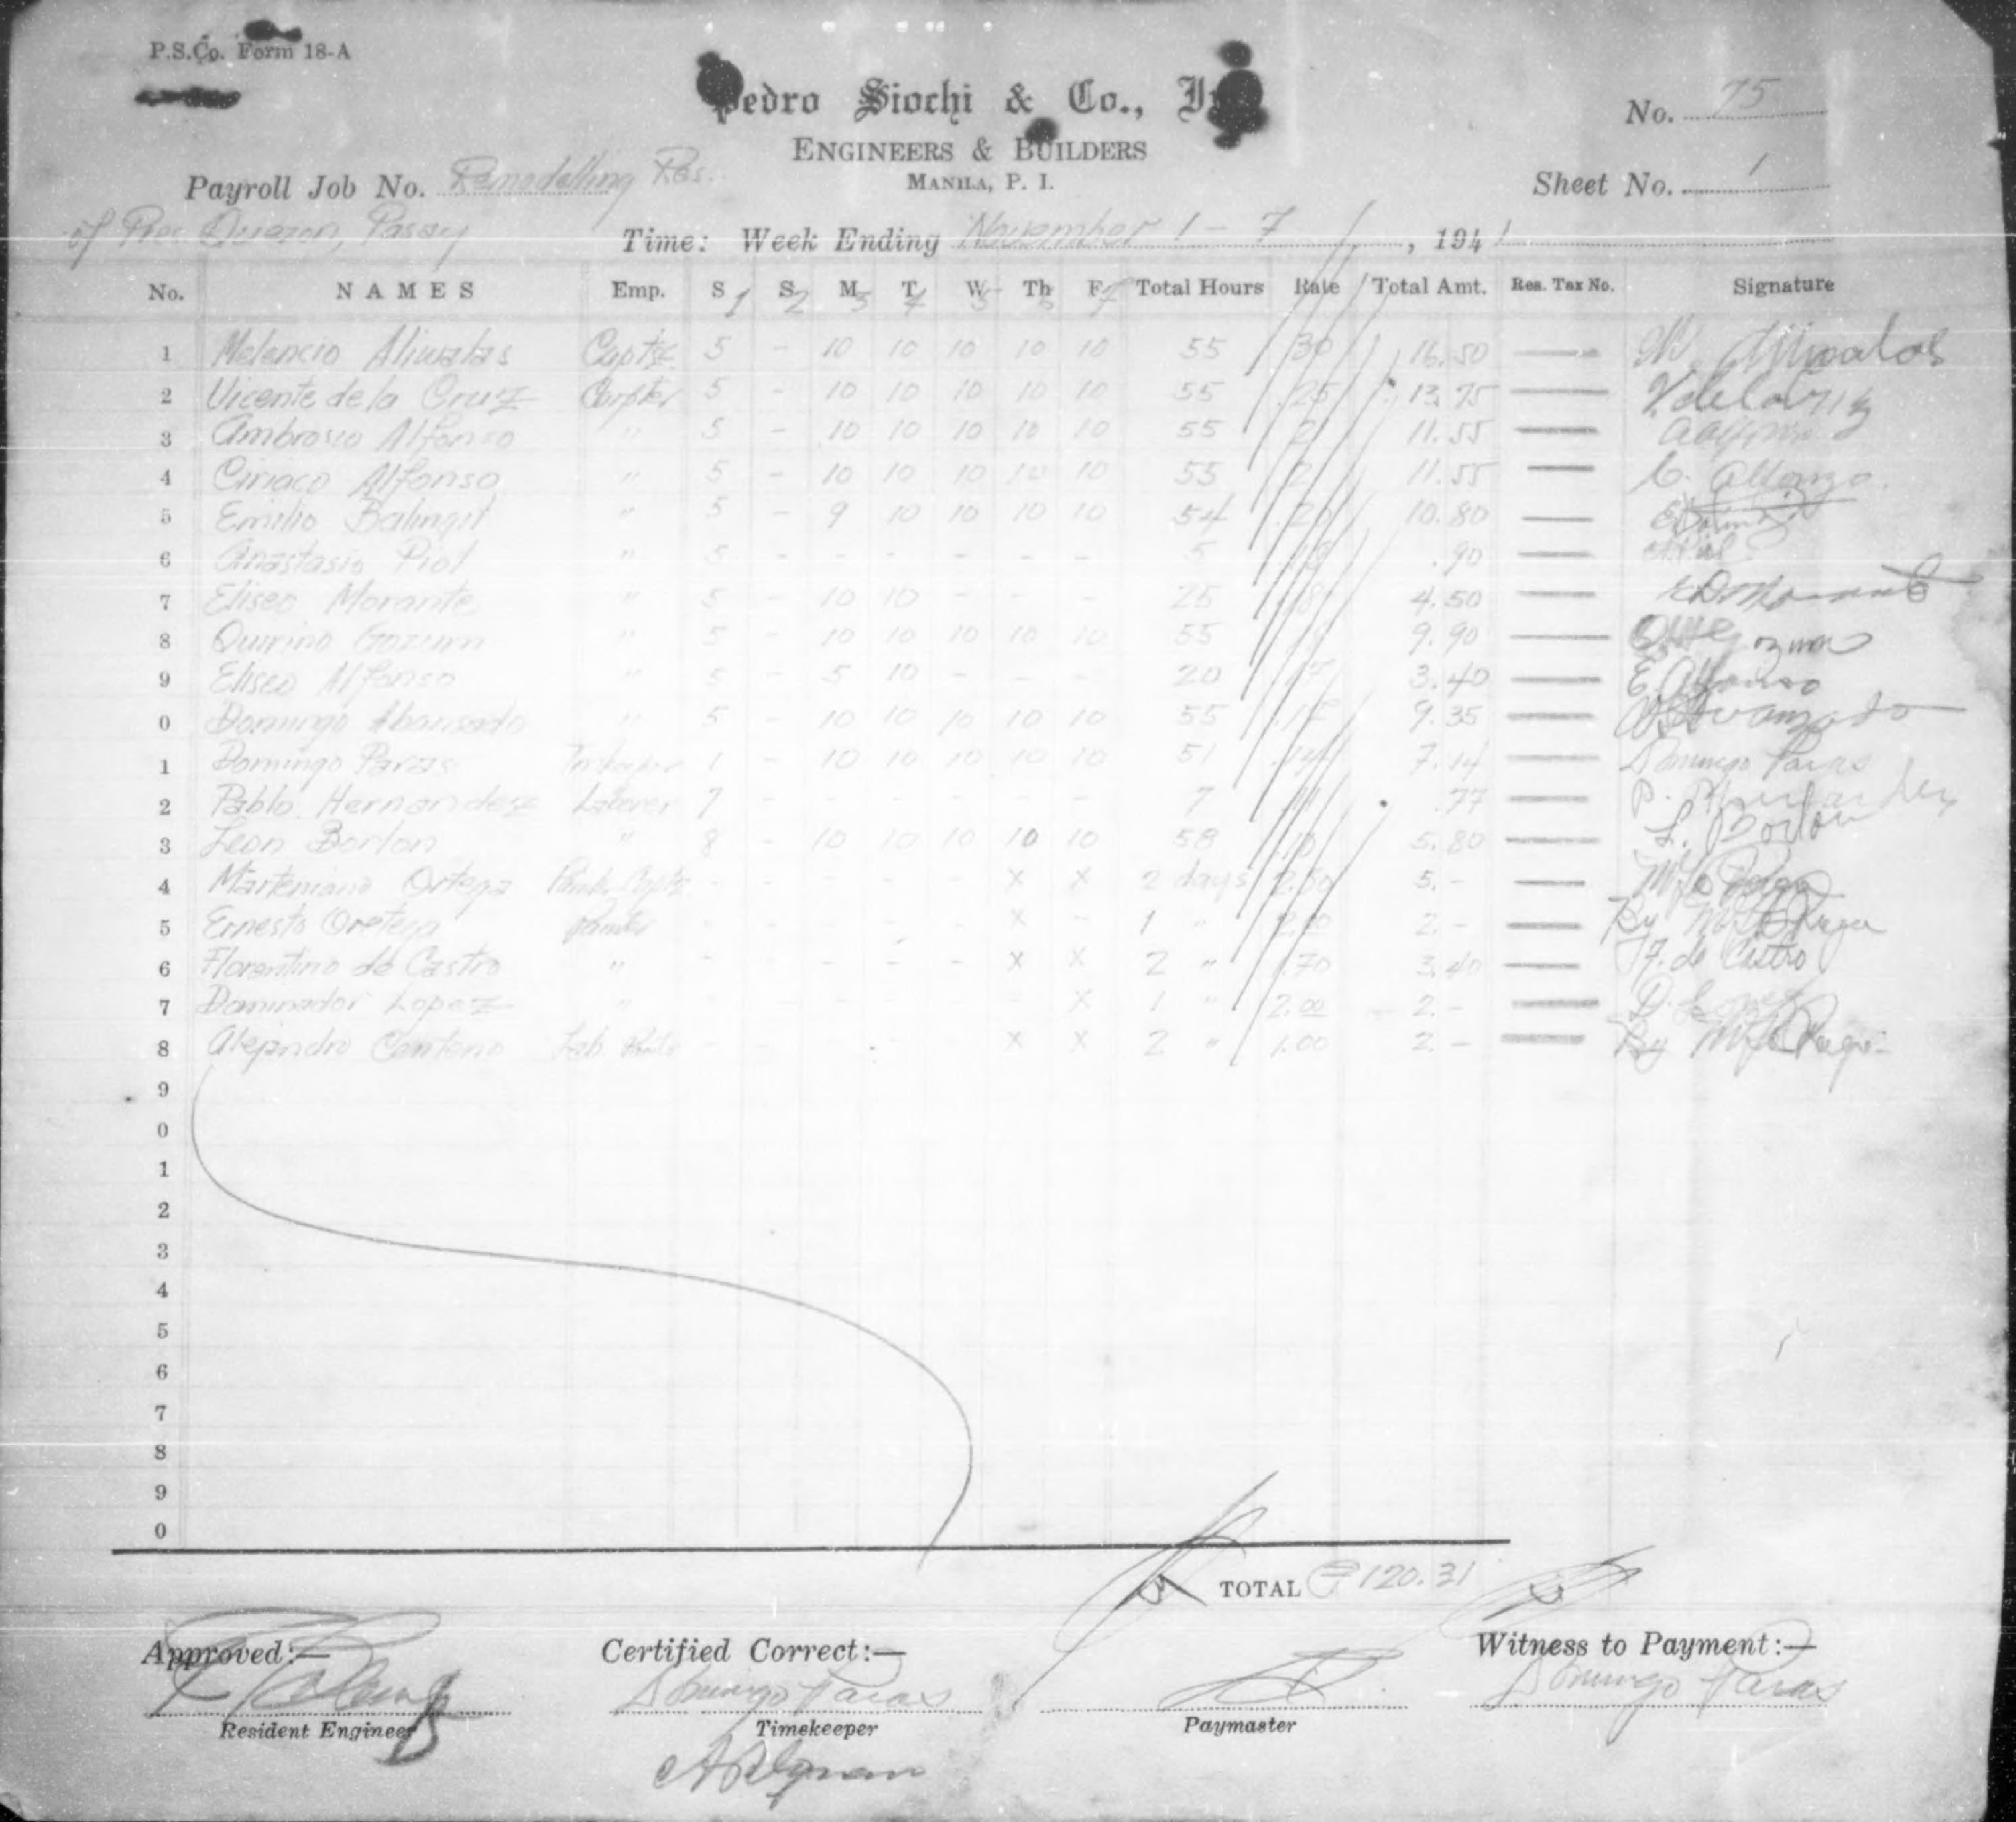 P.S.Co. Form 18-A
Pedro Siochi & Co., I
ENGINEERS & BUILDERS
MANILA, P. I.
No. 75
Sheet No. 1
Payroll Job No. Remodelling Res.
of Pres. Quezon, Pasay
Time: Week Ending November 1 - 7, 1941
No. NAMES Emp. S 1 S 2 M 3 T 4 W 5 Th 6 F 7 Total Hours Rate Total Amt. Res. Tax No. Signature
1 Melencio Aliwalas Captz. 5 - 10 10 10 10 10 55 .30 16.50 — M. Aliwalas
2 Vicente de la Cruz Carpter 5 - 10 10 10 10 10 55 .25 13.75 — V. de la Cruz
3 Ambrosio Alfonso " 5 - 10 10 10 10 10 55 .21 11.55 — A Alfonso
4 Ciriaco Alfonso " 5 - 10 10 10 10 10 55 .21 11.55 — C. Alfonso.
5 Emilio Balingit " 5 - 9 10 10 10 10 54 .20 10.80 —
6 Anastasio Piol " 5 - - - - - - 5 .18 .90 —
7 Eliseo Morante " 5 - 10 10 - - - 25 .18 4.50 —
8 Quirino Gozum " 5 - 10 10 10 10 10 55 .18 9.90 — Gozum
9 Eliseo Alfonso " 5 - 5 10 - - - 20 .17 3.40 — E. Alfonso
0 Domingo Abansado " 5 - 10 10 10 10 10 55 .17 9.35 —
1 Domingo Paras 1 - 10 10 10 10 10 51 .14 7.14 — Domingo Paras
2 Pablo Hernandez Laborer 7 - - - - - - 7 .11 .77 — P. Hernandez
3 Leon Borlon " 8 - 10 10 10 10 10 58 .10 5.80 — L. Borlon
4 Marteniano Ortega - - - - - x x 2 days 2.50 5.- —
5 Ernesto Oretega Painter - - - - - x - 1 " 2.00 2.- — By
6 Florentino de Castro " - - - - - x x 2 " 1.70 3.40 — F. de Castro
7 Dominador Lopez " - - - - - - x 1 " 2.00 2.- — D. Lopez
8 Alejandro Centeno Lab. - - - - - x x 2 " 1.00 2.- — By
9
0
1
2
3
4
5
6
7
8
9
0
TOTAL ₱120.31
Approved:— Certified Correct:— Witness to Payment:—
Domingo Paras Domingo Paras
Resident Engineer Timekeeper Paymaster